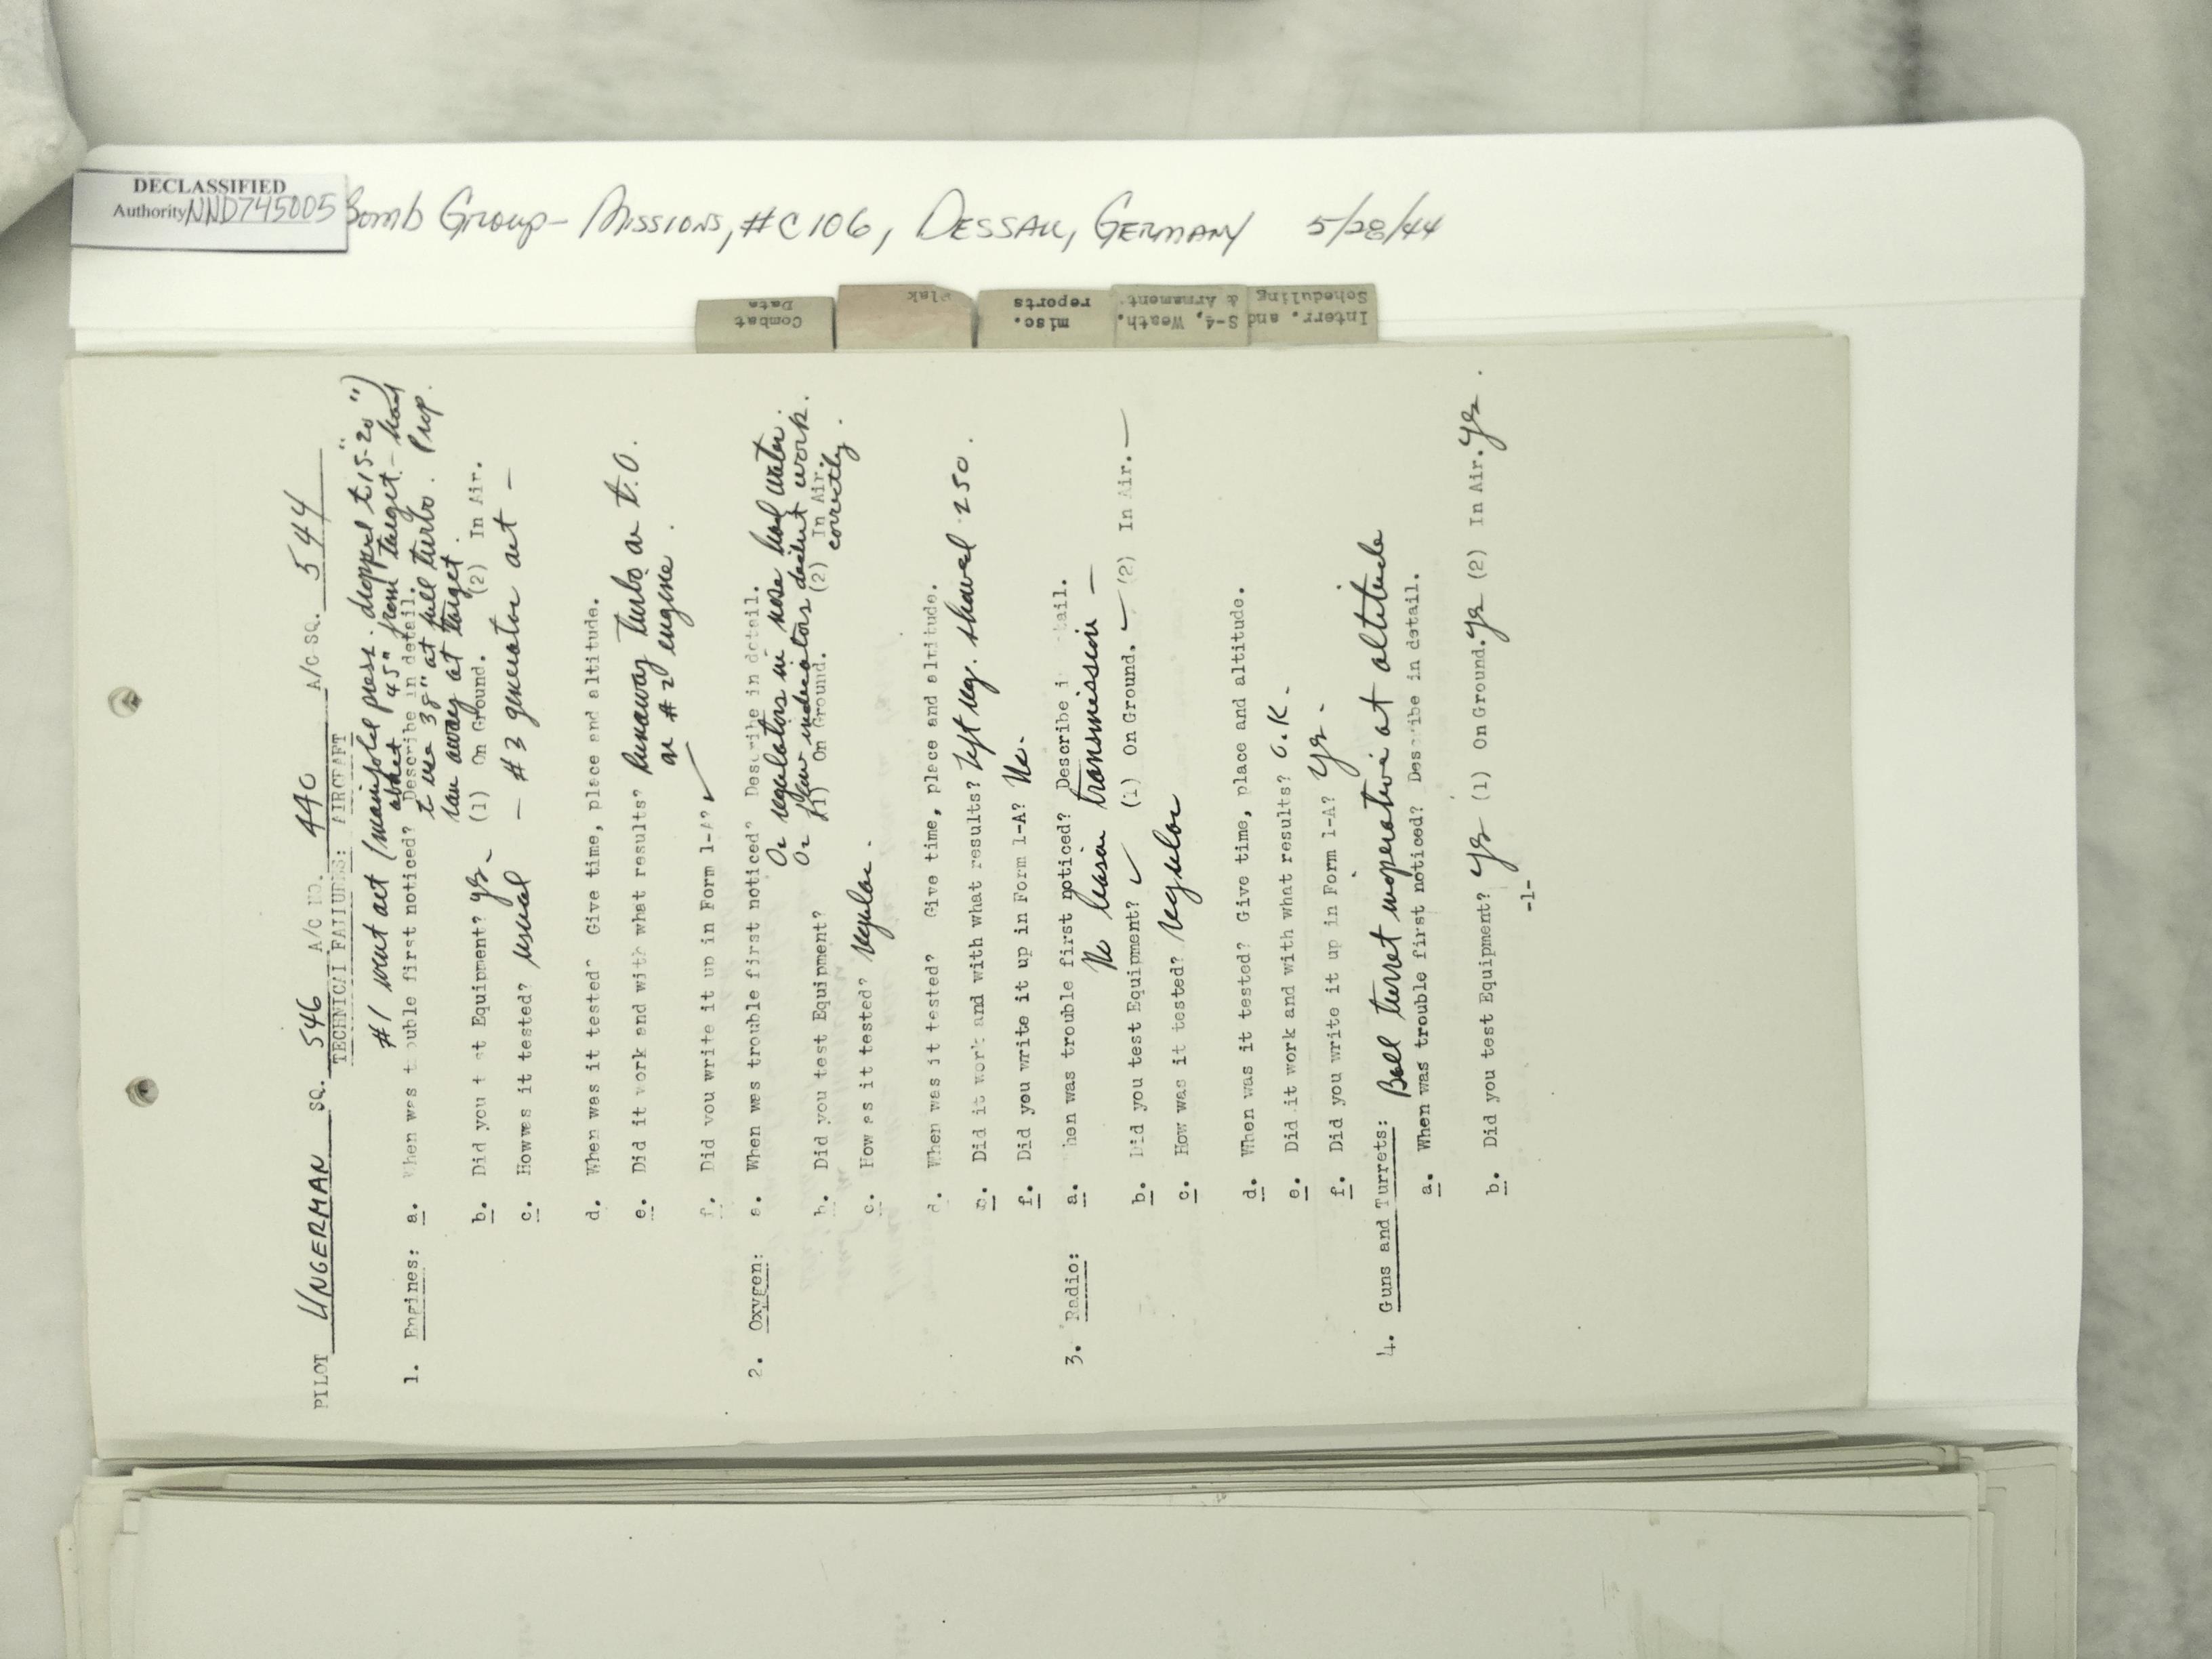 DECLASSIFIED
Authority NND745005
Bomb Group - Missions, #C106, Dessau, Germany 5/28/44
Combat Data
Flak
misc. reports
S-4, Weath. & Armament
Interr. and Scheduling
PILOT UNGERMAN SQ. 546 A/C NO. 440 A/C SQ. 544
TECHNICAL FAILURES: AIRCRAFT
#1 went out (manifold press. dropped to 15-20")
about 45" from target - had
1. Engines: a. When was trouble first noticed? Describe in detail.
to use 38" at full turbo. Prop
ran away at target.
b. Did you test Equipment? yes (1) On Ground. (2) In Air.
c. How was it tested? usual - #3 generator out -
d. When was it tested? Give time, place and altitude.
e. Did it work and with what results? Runaway turbo on T.O.
on #2 engine.
f. Did you write it up in Form 1-A? ✓
2. Oxygen: a. When was trouble first noticed? Describe in detail.
O2 regulators in nose had water.
O2 flow indicators didn't work
correctly.
b. Did you test Equipment? (1) On Ground. (2) In Air.
c. How as it tested? regular.
d. When was it tested? Give time, place and altitude.
e. Did it work and with what results? Left reg. showed 250.
f. Did you write it up in Form 1-A? No.
3. Radio: a. When was trouble first noticed? Describe in detail.
No transmission -
b. Did you test Equipment? ✓ (1) On Ground. — (2) In Air. —
c. How was it tested? regular
d. When was it tested? Give time, place and altitude.
e. Did it work and with what results? O.K.
f. Did you write it up in Form 1-A? yes.
4. Guns and Turrets: Ball turret inoperative at altitude
a. When was trouble first noticed? Describe in detail.
b. Did you test Equipment? yes (1) On Ground. yes (2) In Air. yes.
-1-